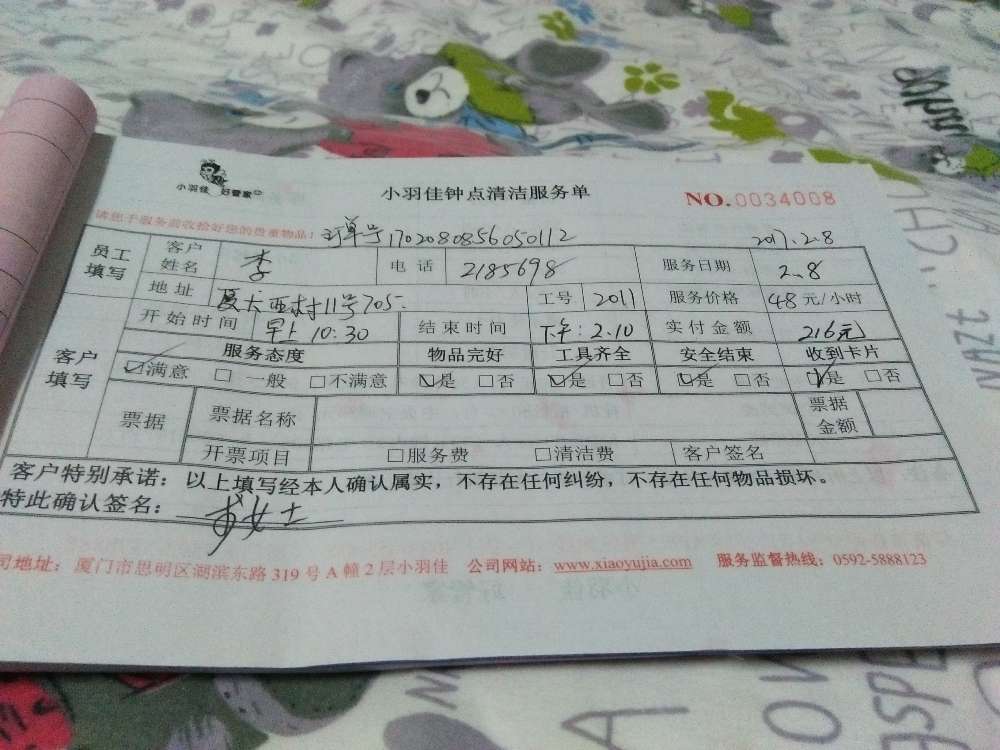 小羽佳 好管家
小羽佳钟点清洁服务单
NO.0034008
请您于服务前收拾好您的贵重物品!
订单号170208085605 0112
2017.2.8
员工填写 客户姓名 李 电话 2185698 服务日期 2.8
地址 厦大西村11号705. 工号 2011 服务价格 48元/小时
客户填写 开始时间 早上10:30 结束时间 下午:2.10 实付金额 216元
服务态度 物品完好 工具齐全 安全结束 收到卡片
满意 一般 不满意 是 否 是 否 是 否 是 否
票据 票据名称 票据金额
开票项目 服务费 清洁费 客户签名
客户特别承诺:以上填写经本人确认属实,不存在任何纠纷,不存在任何物品损坏。
特此确认签名: 女士
司地址:厦门市思明区湖滨东路319号A幢2层小羽佳 公司网站:www.xiaoyujia.com 服务监督热线:0592-5888123